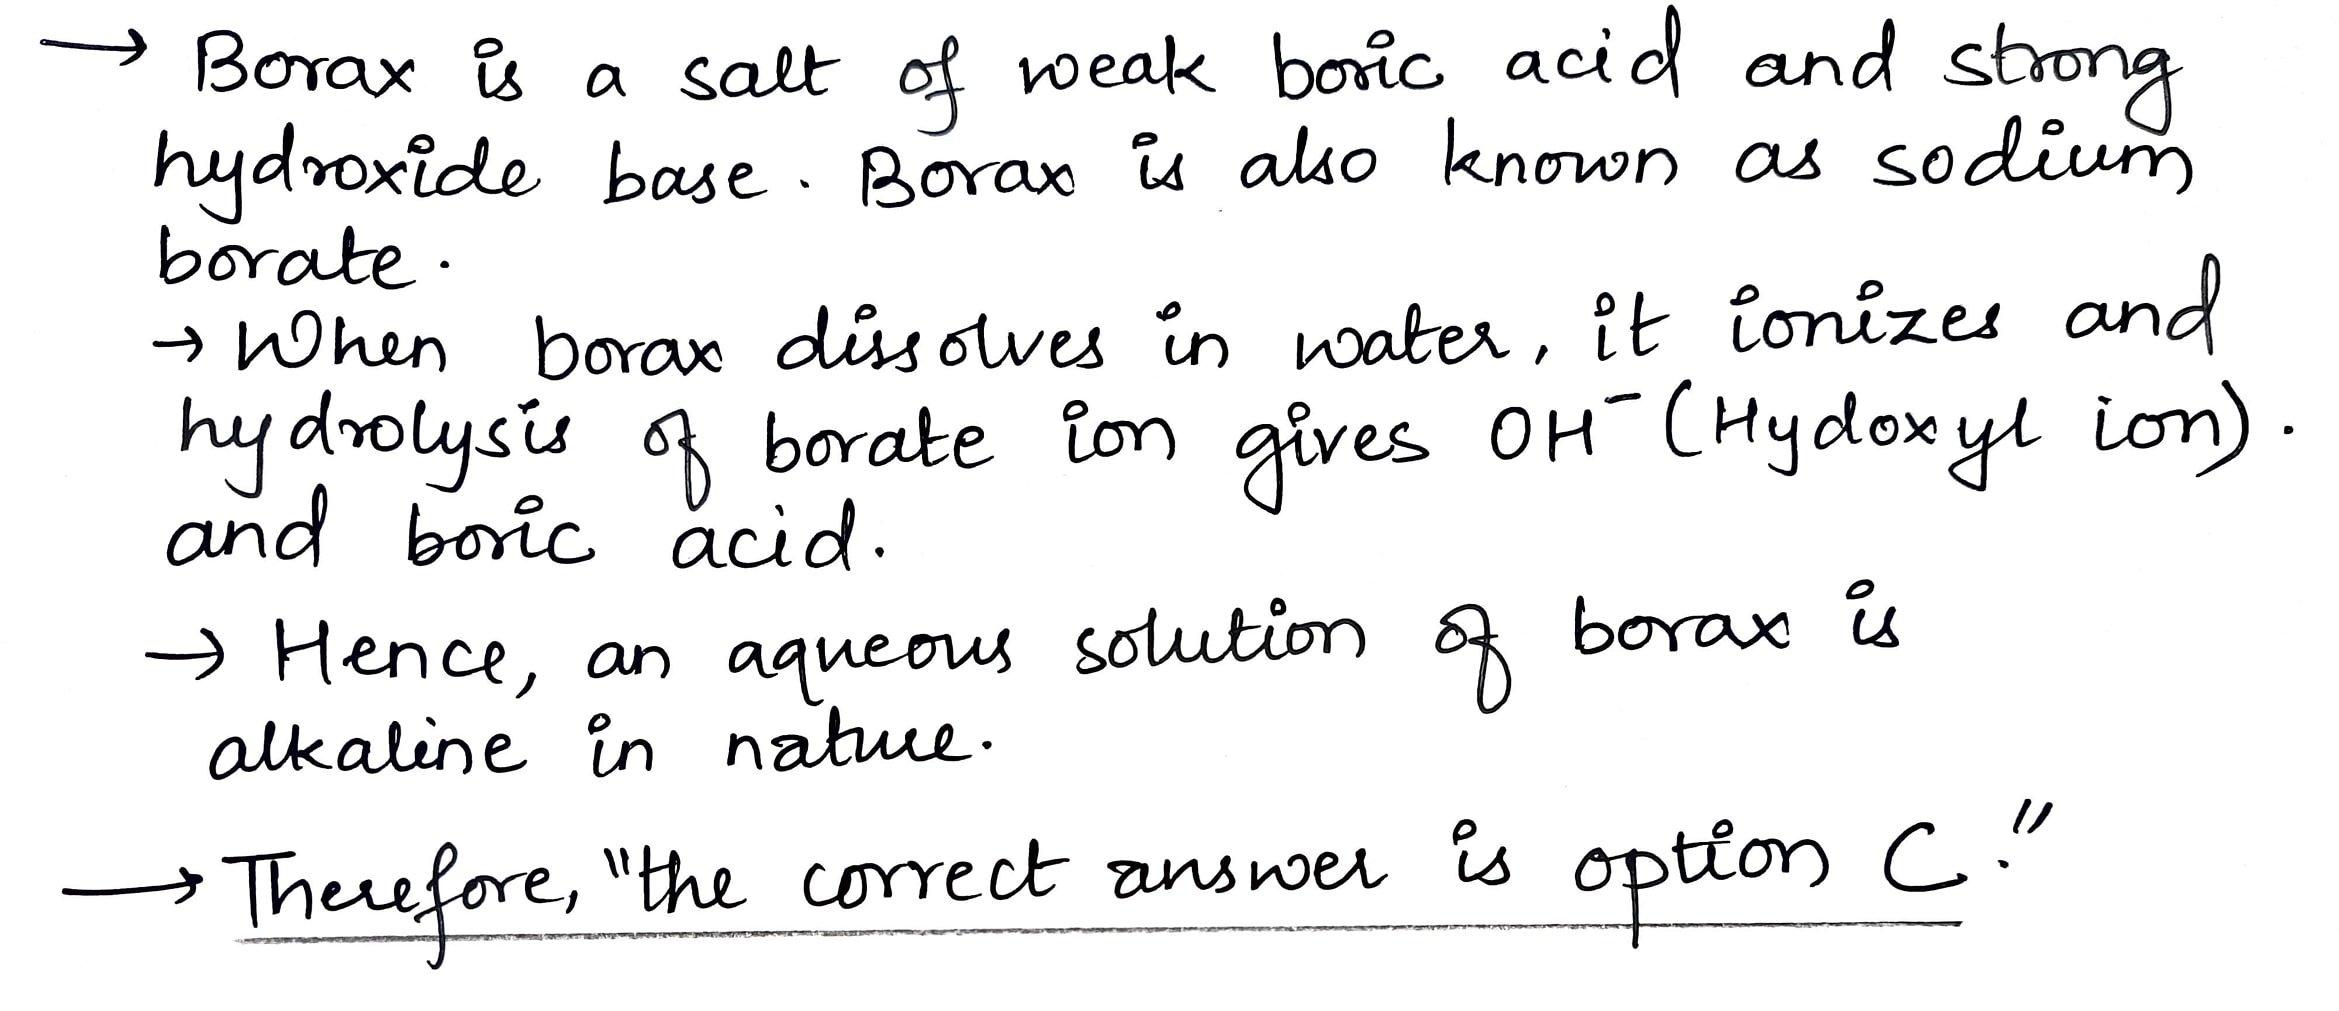 → Borax is a salt of weak boric acid and strong
hydroxide base. Borax is also known as sodium
borate.
→ When borax dissolves in water, it ionizes and
hydrolysis of borate ion gives OH⁻ (Hydoxyl ion).
and boric acid.
→ Hence, an aqueous solution of borax is
alkaline in nature.
→ Therefore, "the correct answer is option C."